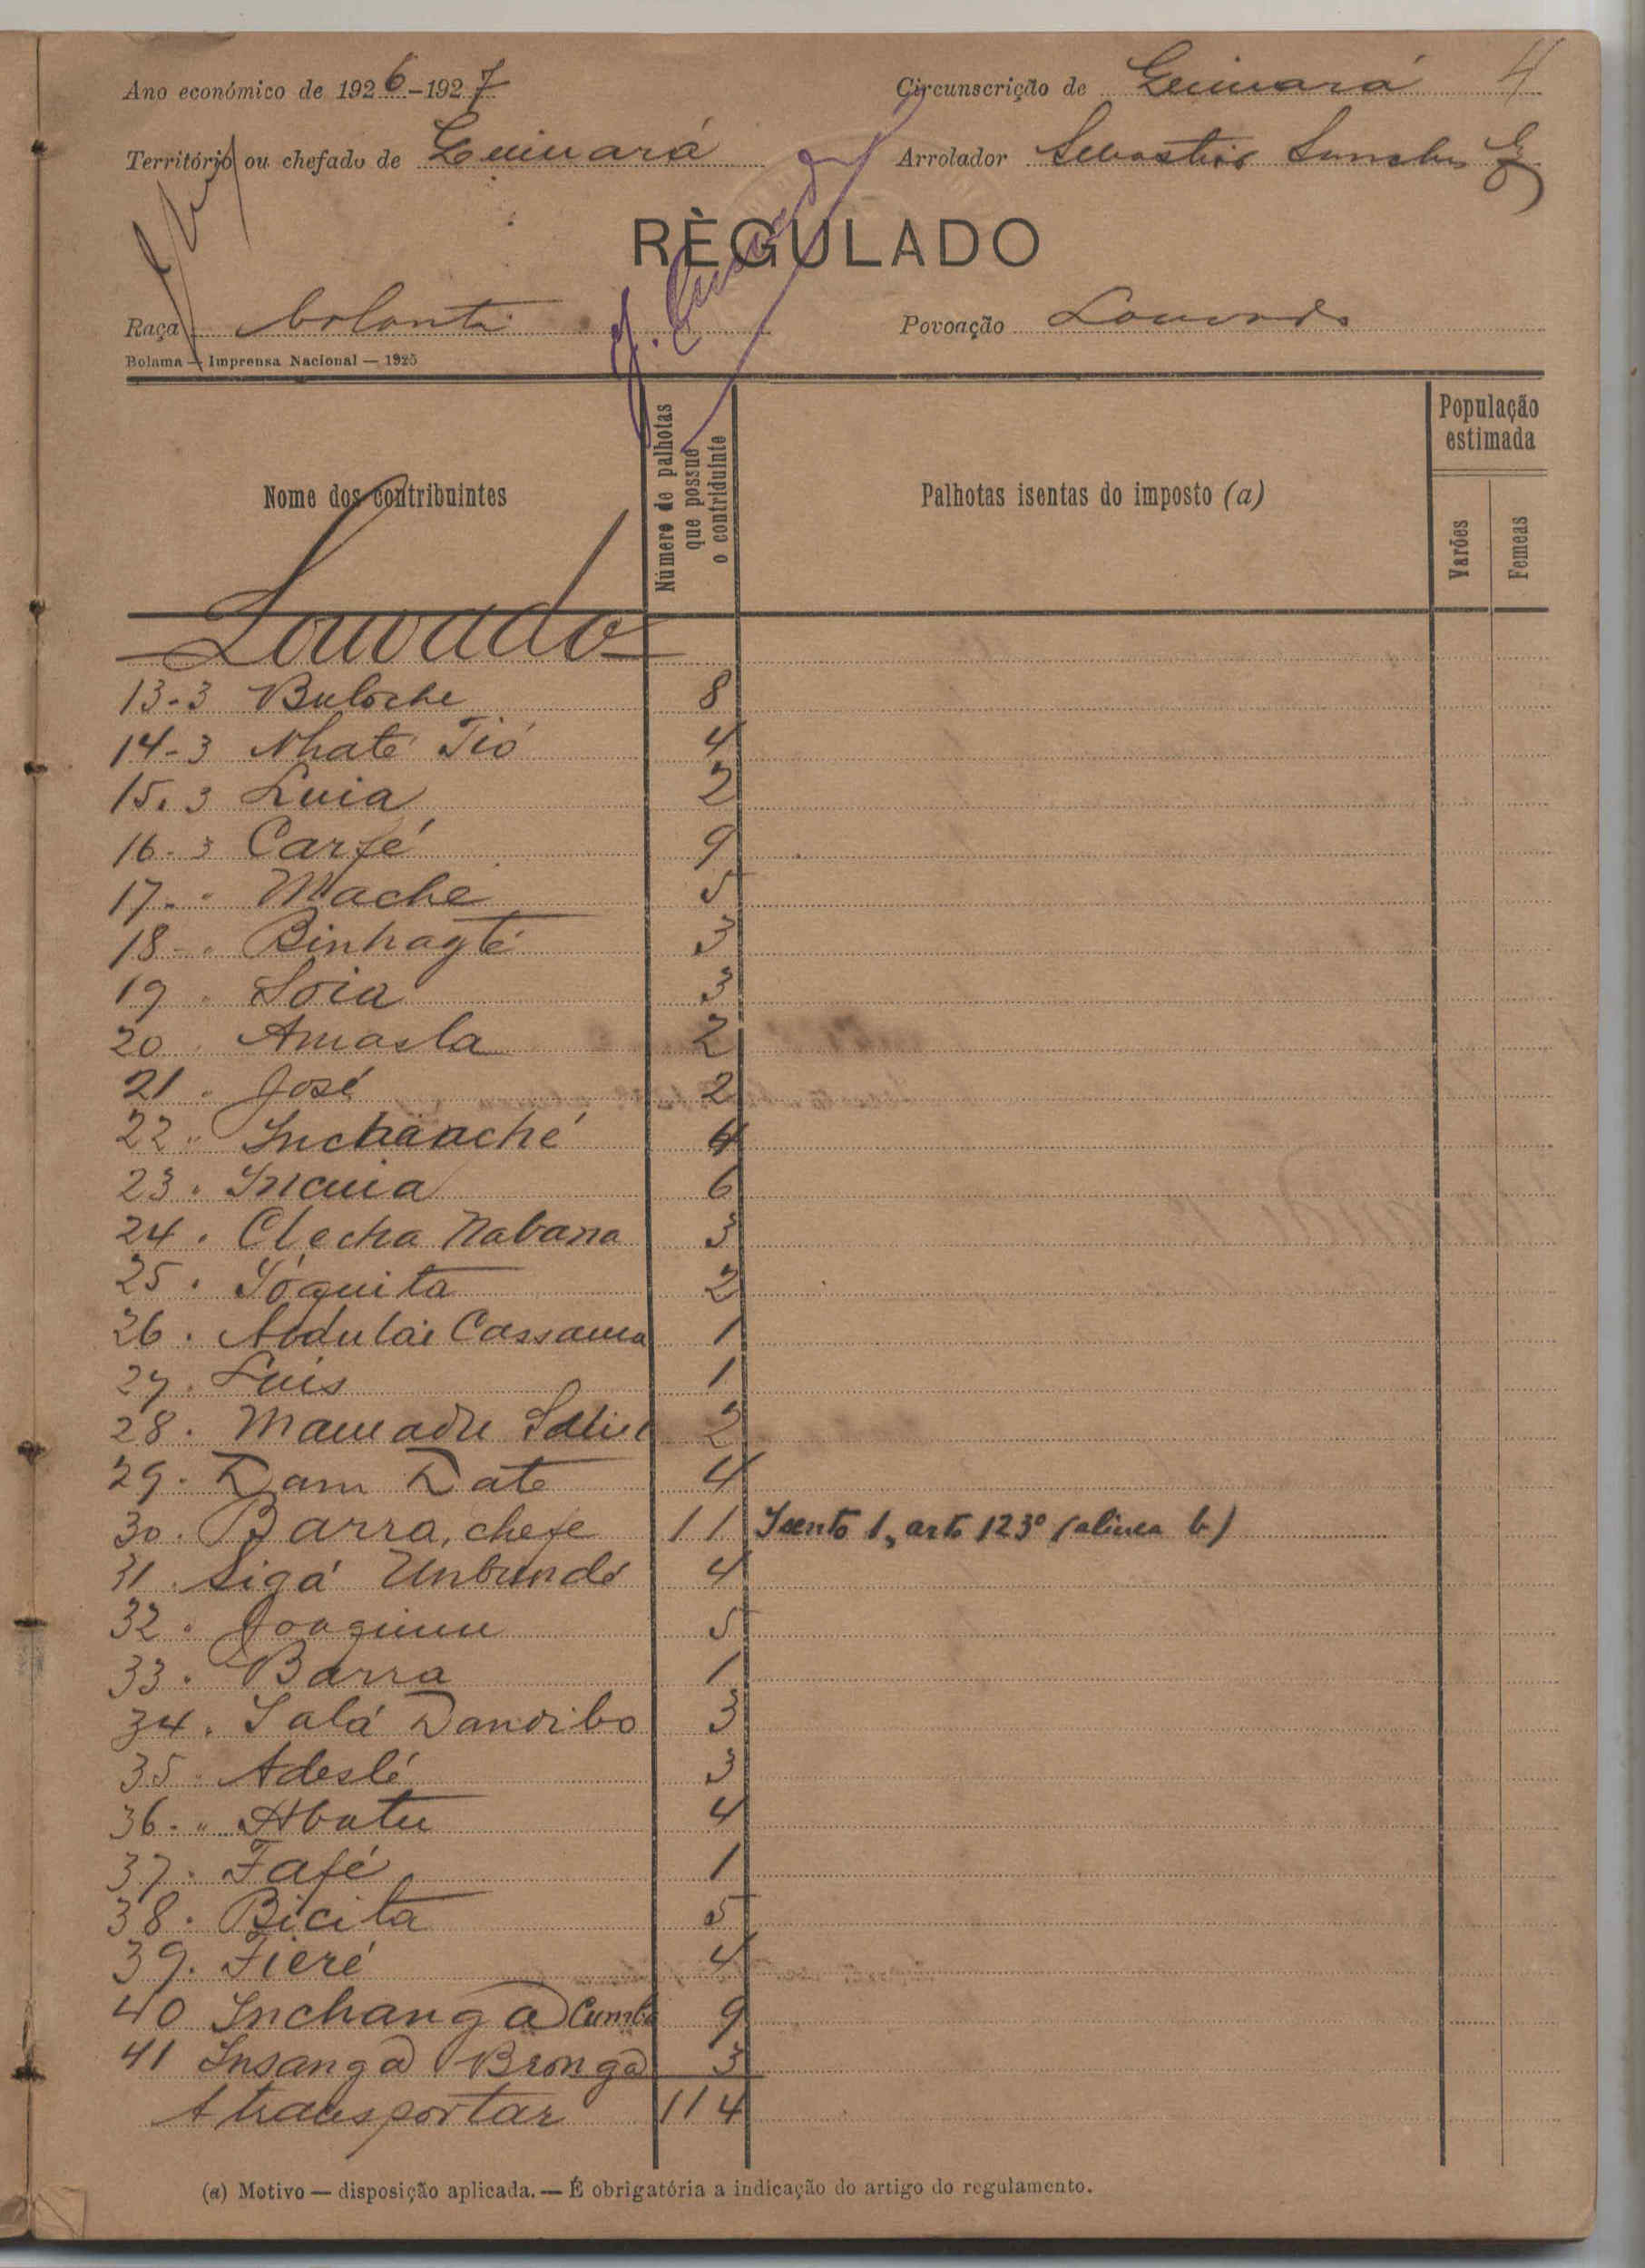 4
Ano económico de 1926-1927 Circunscrição de Guinará
Território ou chefado de Guinará Arrolador Sebastião Sanches
RÈGULADO
Raça bolanta Povoação Louvado
Bolama — Imprensa Nacional — 1925
Nome dos contribuintes Número de palhotas que possue o contriduinte Palhotas isentas do imposto (a) População estimada
Varões Femeas
Louvado
13-3 Buloche 8
14-3 Nhaté Tió 4
15.3 Luia 2
16-3 Carfé 9
17-" Mache 5
18-" Binhagté 3
19 " Soia 3
20 " Amasla 2
21 " José 2
22 " Inchanché 4
23 " Incuia 6
24 " Clecha Nabana 3
25 " Tóquita 2
26 " Abdulai Cassama 1
27 " Luis 1
28 " Mamadu 2
29 " Dam Date 4
30 " Barra, chefe 11 Isento 1, arto 123º (alinea b)
31 " Sigá Unbundé 4
32 " Joaquim 5
33 " Barra 1
34 " Salá Dandibo 3
35 " Adeslé 3
36-" Abatu 4
37 " Fafé 1
38 " Bicita 5
39 " Fieré 4
40 Inchanga Cumba 9
41 Insanga Bronga 3
A transportar 114
(a) Motivo — disposição aplicada. — É obrigatória a indicação do artigo do regulamento.